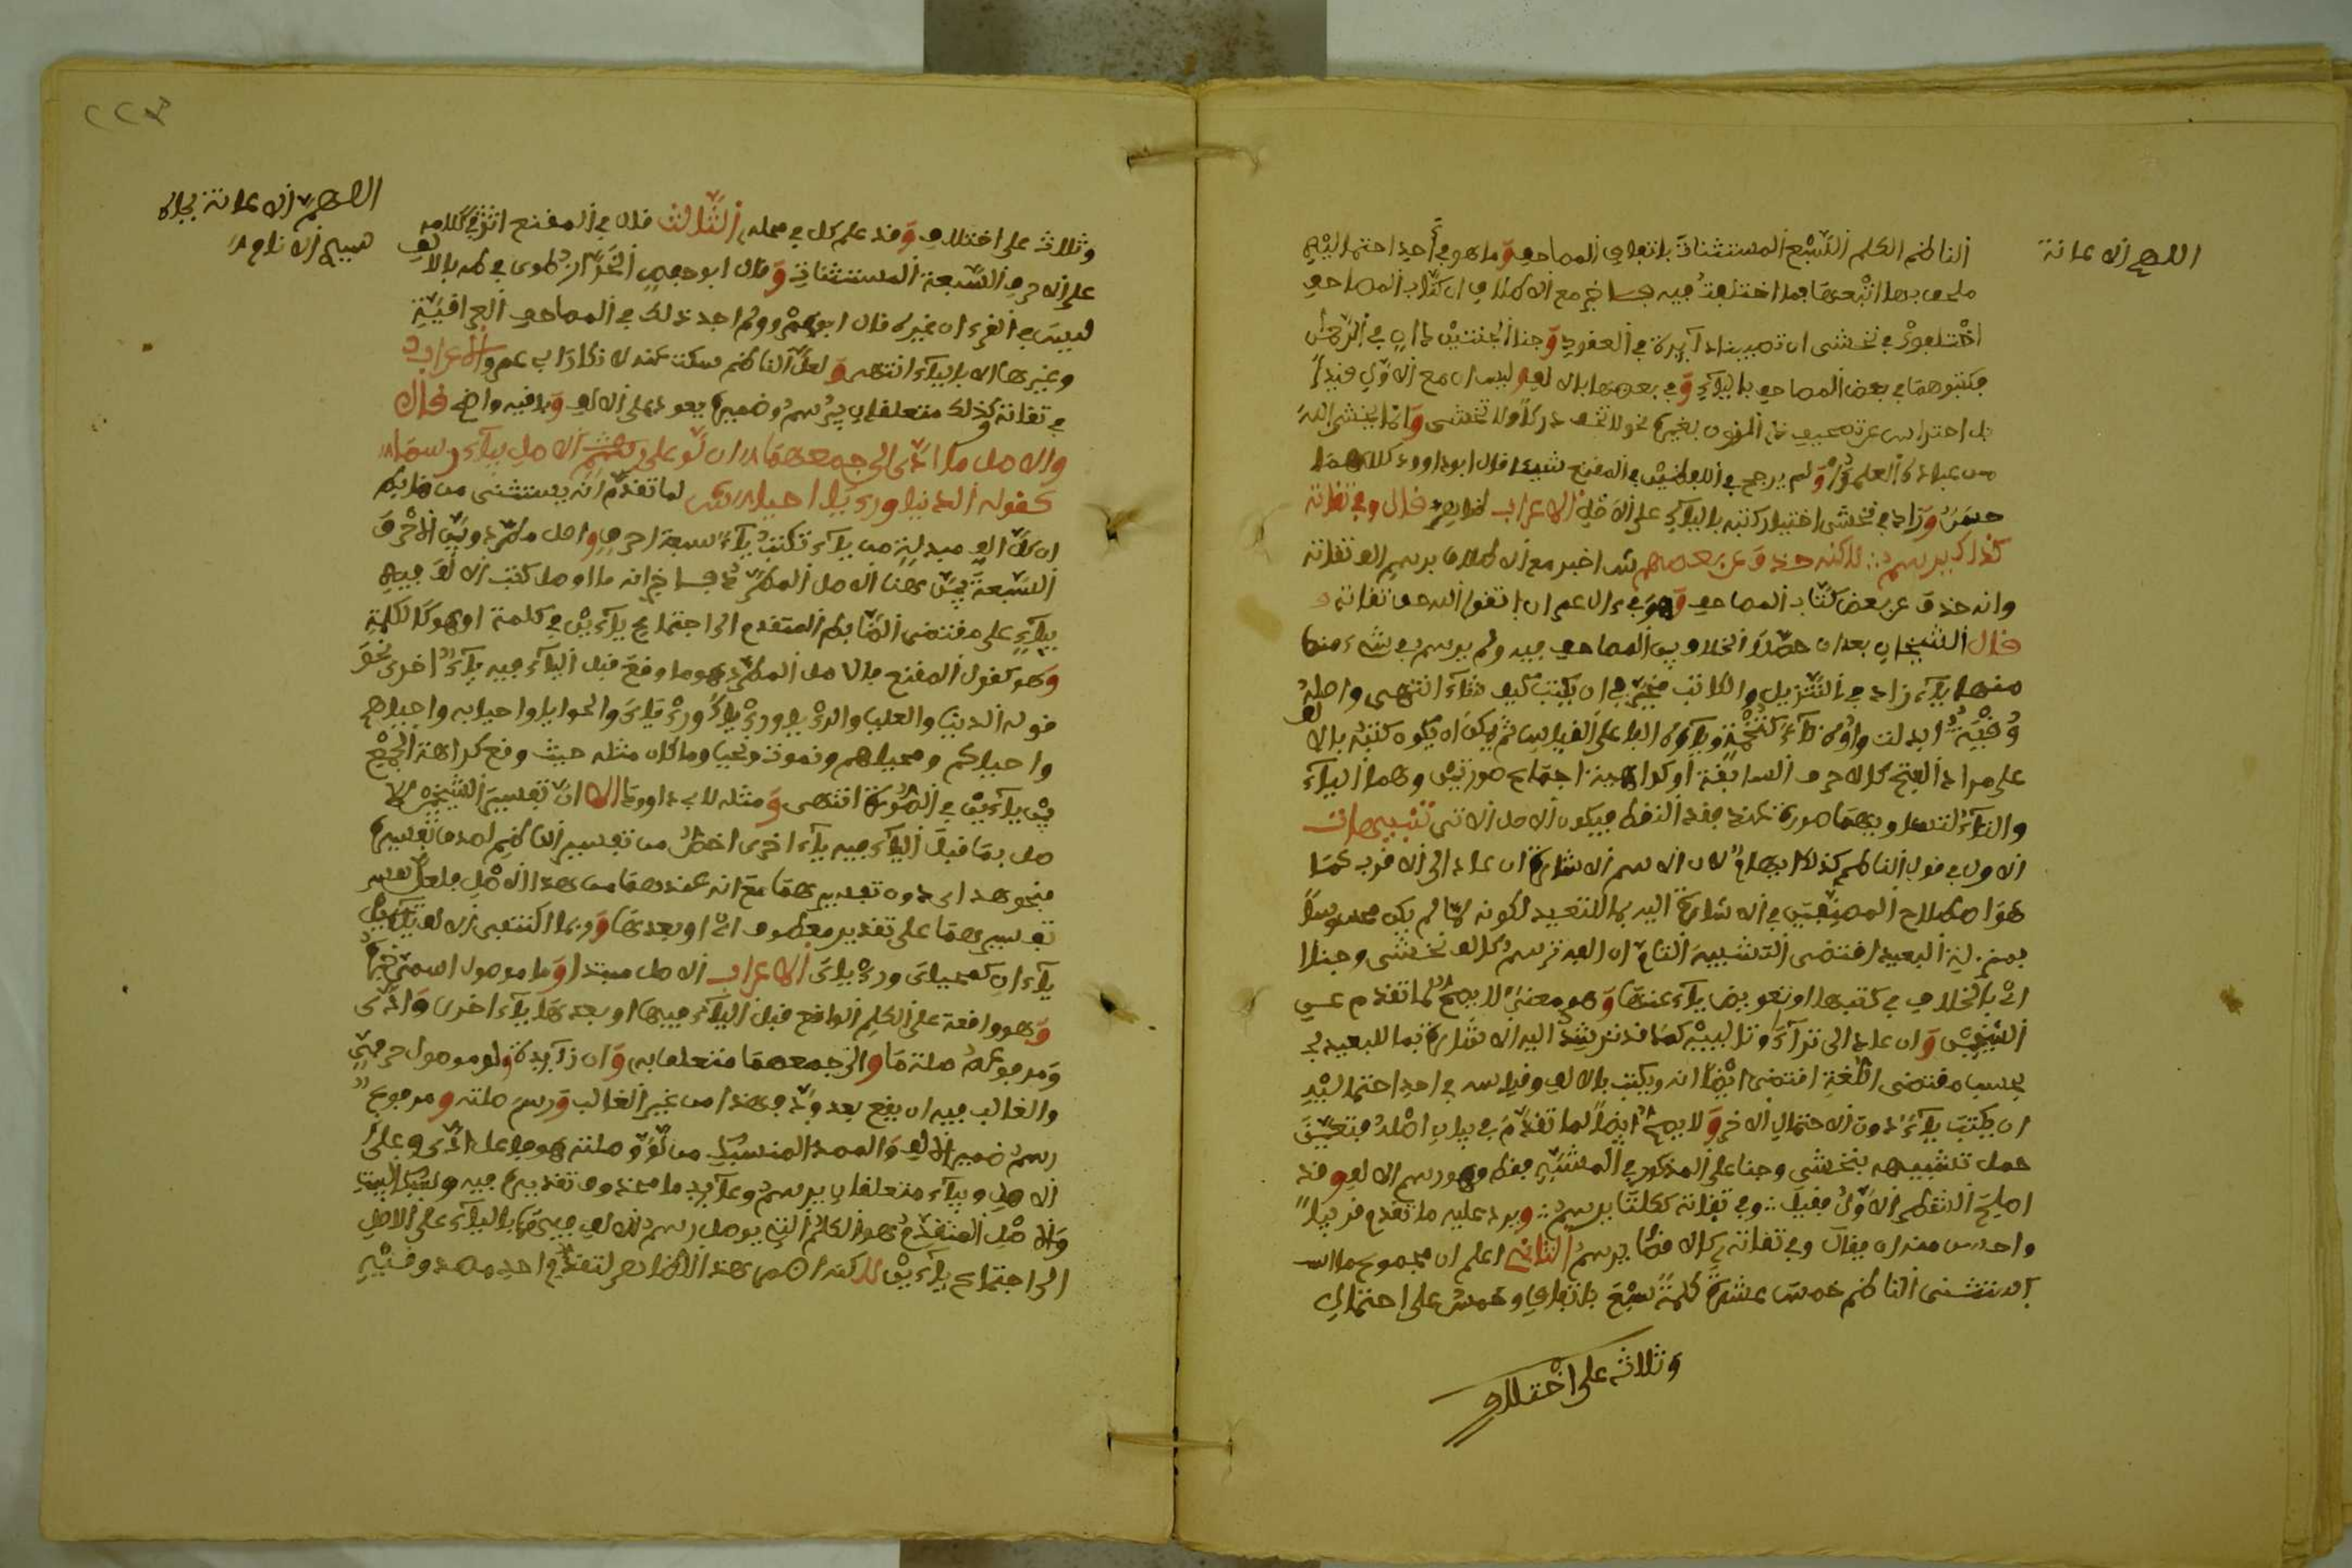 اللهم الاعانة
الناظم الكلم السبع المستثناة باتفاق المصاحف وما هو في أحد احتماليه
ملحق بها اتبعها بما اختلفت فيه فاخبر مع الاطلاق ان كتاب المصاحف
اختلفوا في نخشى ان تصيبنا دآيرة في العقود وجنا الجنتين دان في الرحمن
فكتبوهما في بعض المصاحف باليآء وفي بعضها بالالف وليس ان مع الاول قيدا
بل احتراس عن صحيف بالنون بغيرها نحو لا تخف دركا ولا تخشى وانما يخشى الله
من عباده العلمؤا ولم يرجح في اللفظين في المقنع شيئا قال ابو داوود كلاهما
حسن وزاد في نخشى اختيار كتبه باليآء على الاصل الاعراب ظاهر قال وفي تقاته
كذاك يرسم :: لاكنه حذف عن بعضهم ش اخبر مع الاطلاق برسم الف تقاته
وانه حذف عن بعض كتاب المصاحف وهو في ال عمران اتقوا الله حق تقاته
قال الشيخان بعد ان حصلا الخلاف بين المصاحف فيه ولم يرسم في شيء منها
منها يآء زاد في التنزيل والكاتب مخير في ان يكتب كيف شآء انتهى واصله
وقية ابدلت واوه تآء كتخمة ويآؤه الفا على القياس ثم يمكن ان يكون كتبه بالالف
على مراد الفتح كالاحرف السابقة أو كراهية اجتماع صورتين وهما اليآء
والتآء لتساويهما صورة عند فقد النقط فيكون الاصل الاتي تنبيهات
الاول في قول الناظم كذاك ابهام لان الاسم الاشارة ان عاد الى الاقرب كما
هو اصطلاح المصنفين في الاشارة اليه بما للبعيد لكونه لما لم يكن محسوسا
بمنزلة البعيد اقتضى التشبيه التام ان الفه ترسم كالف نخشى وجنا
اي بالخلاف في كتبها او تعويض يآء عنها وهو معنى لا يصح لما تقدم عن
الشيخين وان عاد الى ترآءا وتا لبيه كما قد ترشد اليه الاشارة بما للبعيد
بحسب مقتضى اللغة اقتضى ايضا انه ويكتب بالالف وقياسه في احد احتماليه
ان يكتب يآء دون الاحتمال الاخر ولا يصح ايضا لما تقدم في بيان اصله فتعين
حمل تشبيهه بنخشى وجنا على المذكور في المشبه فقط وهو رسم الالف وقد
اصلح الشطر الاول فقيل :: وفي تقاته ككلتا يرسم :: ويرد عليه ما تقدم قريبا
واحسن منه ان يقال وفي تقاته كالاقصا يرسم الثاني اعلم ان مجموع ما
استثنى الناظم خمس عشرة كلمة سبع باتفاق وخمس على احتمال
وثلاث على اختلاف
٢٢٣
اللهم الاعانة بجاه
وثلاث على اختلاف وقد علم كل في محله الثالث قال في المقنع اثر كلامه
على الاحرف السبعة المستثناة وقال ابو حفص الخزاز طوى في طه بالالف
ليس في القرءان غيره قال ابو عمرو ولم اجد ذلك في المصاحف العراقية
وغيرها الا باليآء انتهى ولعل الناظم سكت عنه لانكار ابي عمرو الاعراب
في تقاته وكذلك متعلقان بيرسم وضميره يعود على الالف وباقيه واضح قال
والاصل ما ادى الى جمعهما ان لو على الاصل بيآء رسما
كقوله الدنيا ورءيا احيا لما تقدم انه يستثنى من ضابط
ان كل الف مبدلة من يآء تكتب يآء سبعة احرف واصل مطرد وبين الاحرف
السبعة بين هنا الاصل المطرد فاخبر انه ما اوصل كتب الالف فيه
بيآء على مقتضى الضابط المتقدم الى اجتماع يآءين في كلمة او هو كالكلمة
وهو كقول المقنع فالاصل المطرد هو ما وقع قبل اليآء فيه يآء اخرى نحو
قوله الدنيا والعليا والرءيا ورءياك ورءياي والحوايا واحيا به واحياهم
واحياكم ومحياهم ونموت ونحيا وما كان مثله حيث وقع كراهة الجمع
بين يآءين في الصورة انتهى ومثله لابي داوود الا ان تفسير الشيخين الا
صل بما قبل اليآء فيه يآء اخرى اخص من تفسير الناظم لصدق تفسيره
بنحو هداى دون تفسيرهما مع انه عندهما من هذا الاصل فلعل
تفسيرهما على تقدير معطوف اي او بعدها وربما اكتنفى الالف
يآءان كمحياى ورءياى الاعراب الاصل مبتدا وما موصول اسمي خبره
وهو واقعة على الكلم الواقع قبل اليآء فيها او بعدها يآء اخرى وادى
ومرفوعه صلة ما والى جمعهما متعلق به وان زآيدة ولو موصول حرفي
والغالب فيه ان يقع بعد ود فهذا من غير الغالب ورسم صلته ومرفوع
رسم ضمير الالف والمصدر المنسبك من لو وصلته هو فاعل ادى وعلى
الاصل وبيآء متعلقان برسم وعآيد ما محذوف تقديره فيه وسبك البيت
والاصل المتقدم هو الكلم التي يوصل رسم الالف فيها باليآء على الاصل
الى اجتماع يآءين لاكنه اظهر لتقدم احد مصدوقيه